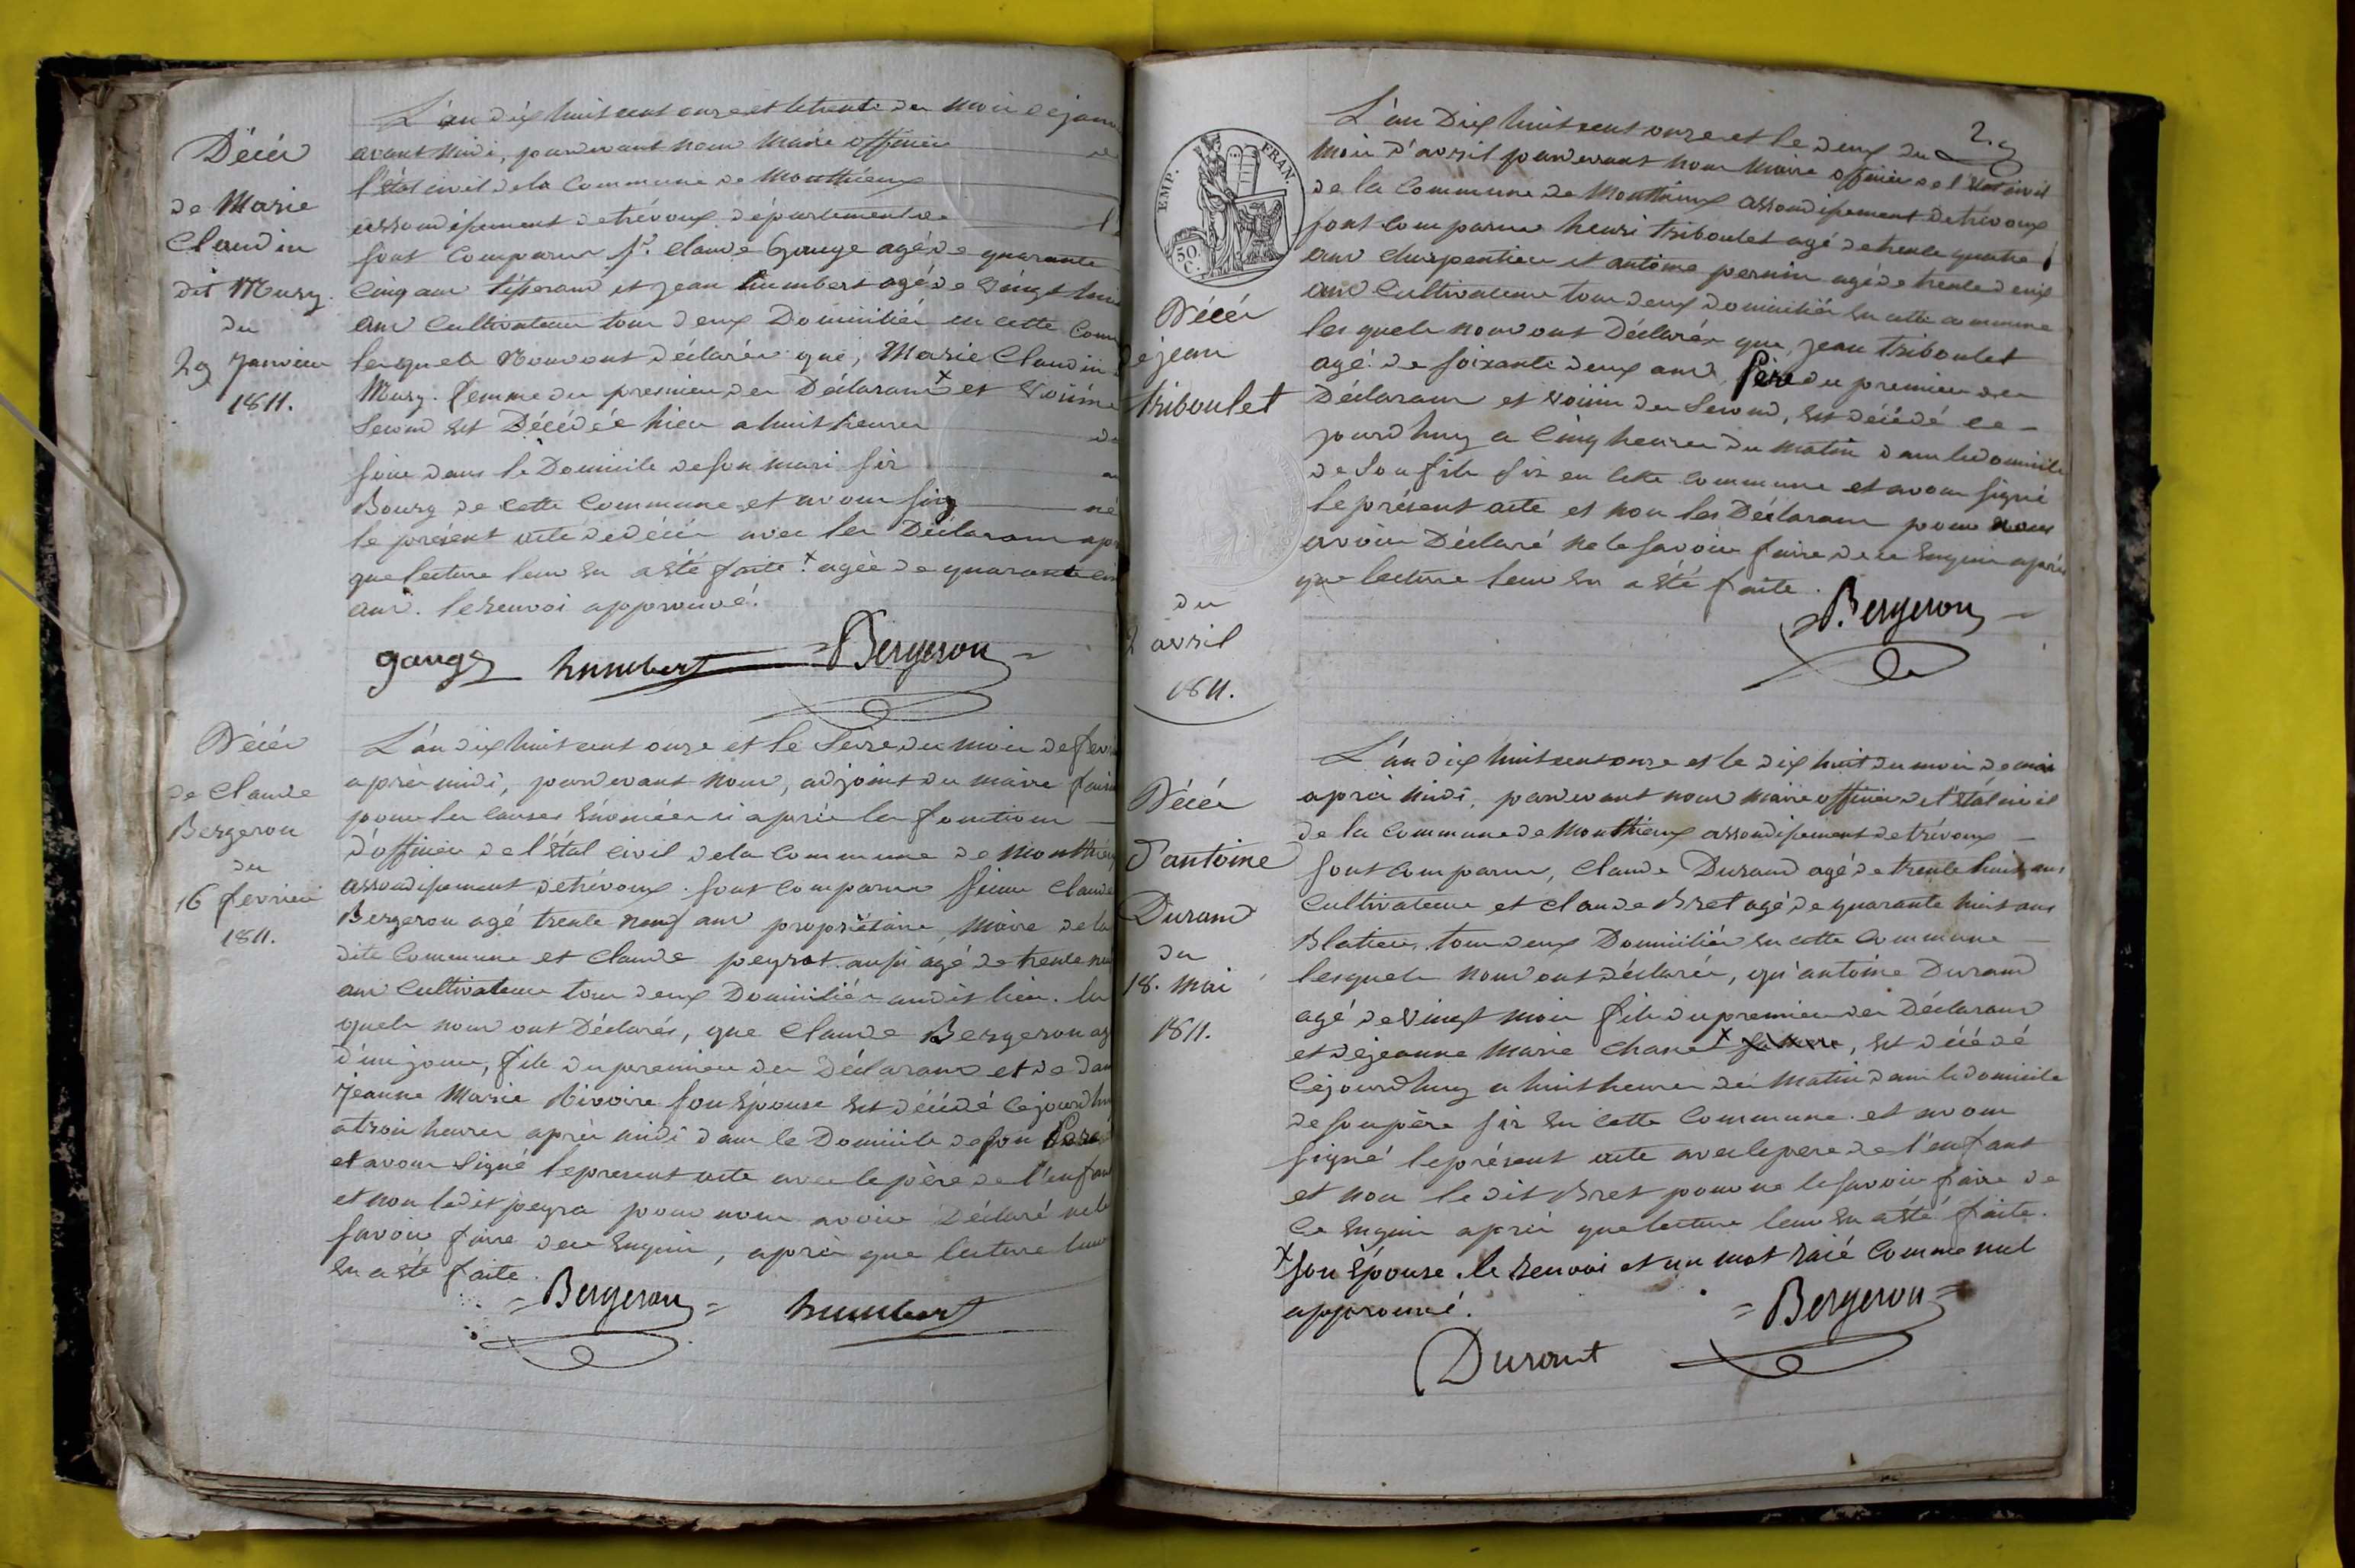 Décès
de Marie
Claudin
dit Mury.
du
29 Janvier
1811.
L'an dix huit cent onze et le trente du mois de janv
avant midi, pardevant nous Maire officier de
l'état civil de la Commune de Monthieux
arrondissement de trévoux département de l'
sont Comparus Sr. Claude Gauge agé de quarante
Cinq ans tisserand et Jean humbert agé de vingt huit
ans Cultivateur tous deux Domiciliés en cette Com
lesquels Nous ont déclarés que, Marie Claudin
Mury. femme du premier des Déclarans x et Voisine
Second est Décédée hier a huit heures du
soir dans le Domicile de son mari sis au
Bourg de cette Commune, et avons sig né
le présent acte de décès avec les Déclarans apr
que lecture leur en a été faite. x agée de quarante cin
ans. le renvoi approuvé.
gauge humbert Bergeron
Décès
de Claude
Bergeron
du
16 fevrier
1811.
L'an dix huit cent onze et le Seize du mois de fevr
après midi, pardevant nous, adjoint du maire fais
pour les causes énoncées ci après les fonctions
d'officier de l'état civil de la Commune de Monthieux
arrondissement de trévoux. sont comparus sieur Claude
Bergeron agé trente neuf ans propriétaire, Maire de la
dite Commune et Claude peyrat aussi agé de trente ne
ans Cultivateur tous deux Domiciliés audit lieu. les
quels nous ont Déclarés, que Claude Bergeron ag
d'un jour, fils du premier des Déclarans et de dam
Jeanne Marie Rivoire son épouse est décédé cejourdhu
a trois heures après midi dans le Domicile de son Pere
et avons Signé le present acte avec le père de l'enfan
et non ledit peyra pour nous avoir Déclaré ne le
savoir faire de ce enquis, après que lecture leur
en a été faite.
Bergeron humbert
29
EMP. FRAN.
50. C.
Décès
de jean
triboulet
du
2 avril
1811.
L'an Dix huit cent onze et le deux du
Mois d'avril pardevant nous Maire officier de l'état civil
de la Commune de Monthieux arrondissement de trévoux
sont comparus henri triboulet agé de trente quatre
ans charpentier et antoine pernin agé de trente deux
ans Cultivateur tous deux domiciliés en cette commune
lesquels nous ont Déclarés que, jean triboulet
agé de soixante deux ans, Père du premier des
Déclarans et voisin du Second, est décédé ce
jourdhuy a Cinq heures du matin dans le domicile
de Son fils sis en cette commune et avons signé
le présent acte et non les Déclarans pour nous
avoir Déclaré ne le savoir faire de ce enquis après
que lecture leur en a été faite.
Bergeron
Décès
d'antoine
Durand
du
18. mai
1811.
L'an dix huit cent onze et le dix huit du mois de mai
après midi, pardevant nous maire officier de l'état civil
de la Commune de Monthieux arrondissement de trévoux
sont Comparus, Claude Durand agé de trente huit ans
Cultivateur et Claude Bret agé de quarante huit ans
Blatier, tous deux Domiciliés en cette Commune
lesquels nous ont déclarés, qu'antoine Durand
agé de Vingt mois fils du premier des Déclarans
et de jeanne Marie Chanet x, est décédé
Cejourdhuy a huit heures du Matin dans le domicile
de son père sis en cette Commune. et avons
signé le présent acte avec le pere de l'enfant
et non le dit Bret pour ne le savoir faire de
Ce enquis après que lecture leur en a été faite.
x son épouse. le renvoi et un mot raié Comme nul
approuvé.
Bergeron
Durant